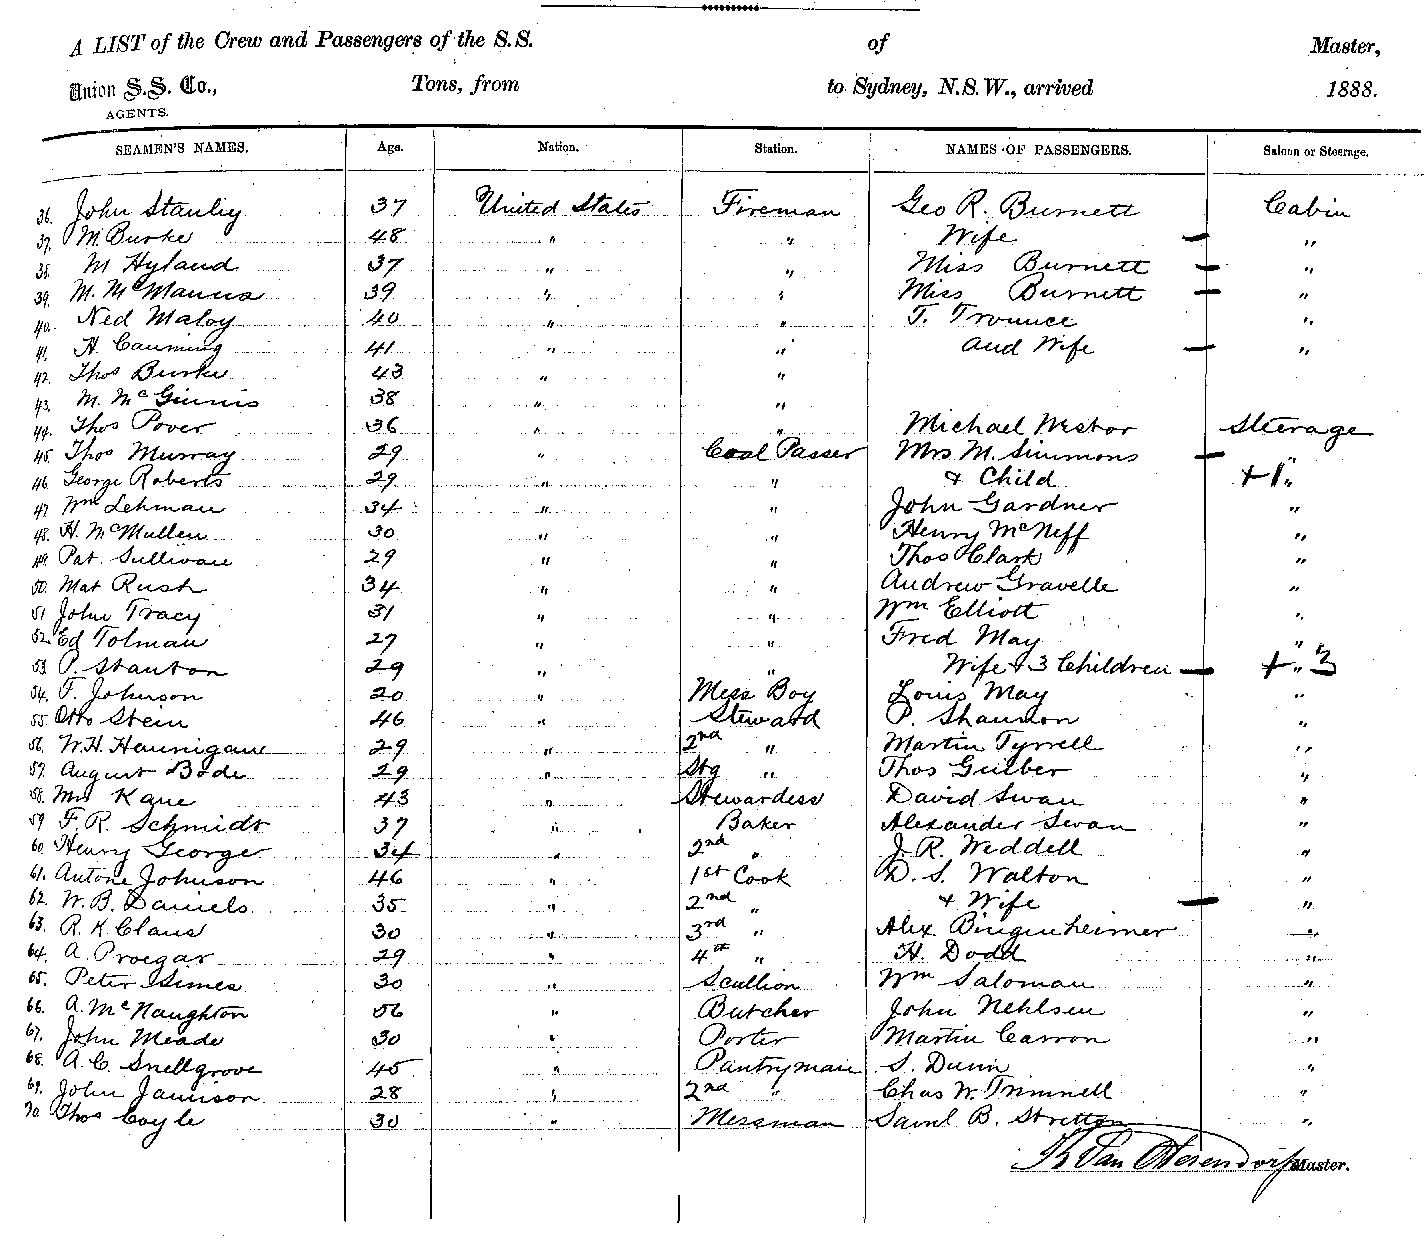 A LIST of the Crew and Passengers of the S.S. of Master,
Union S.S. Co., Tons, from to Sydney, N.S.W., arrived 1888.
AGENTS.
SEAMEN'S NAMES. Age. Nation. Station. NAMES OF PASSENGERS. Saloon or Steerage.
36. John Stanley 37 United States Fireman Geo R. Burnett Cabin
37. M. Burke 48 " " Wife — "
38. M Hyland 37 " " Miss Burnett — "
39. M. McManus 39 " " Miss Burnett — "
40. Ned Maloy 40 " " T. Trounce "
41. H. Canning 41 " " and Wife — "
42. Thos Burke 43 " "
43. M. McGinnis 38 " "
44. Thos Power 36 " " Michael Nestor Steerage
45. Thos Murray 29 " Coal Passer Mrs M. Simmons — "
46. George Roberts 29 " " & Child +1 "
47. Wm Lehman 34 " " John Gardner "
48. H. McMullen 30 " " Henry McNeff "
49. Pat Sullivan 29 " " Thos Clark "
50. Mat Rush 34 " " Andrew Gravelle "
51 John Tracy 31 " " Wm Elliott "
52. Ed Tolman 27 " " Fred May "
53. P. Stanton 29 " " Wife & 3 Children — + " 3
54. F. Johnson 20 " Mess Boy Louis May "
55. Otto Stein 46 " Steward P. Shannon "
56. W.H. Hannigan 29 " 2nd " Martin Tyrrell "
57. August Bode 29 " Stg " Thos Guiber "
58. Mrs Kane 43 " Stewardess David Swan "
59 F. R. Schmidt 37 " Baker Alexander Swan "
60. Henry George 34 " 2nd " J. R. Weddell "
61. Antone Johnson 46 " 1st Cook D. S. Walton "
62. W. B. Daniels 35 " 2nd " & Wife — "
63. R. K. Claus 30 " 3rd " Alex Bingenheimer "
64. A. 29 " 4th " H. Dodd "
65. Peter 30 " Scullion Wm Saloman "
66. A. McNaughton 56 " Butcher John Nehlsen "
67. John Meade 30 " Porter Martin Carron "
68. A. C. Snellgrove 45 " Pantryman S. Dunn "
69. John Jamison 28 " 2nd " Chas W. Trimnell "
70. Thos Coyle 30 " Messman Saml B. Stretton "
Master.